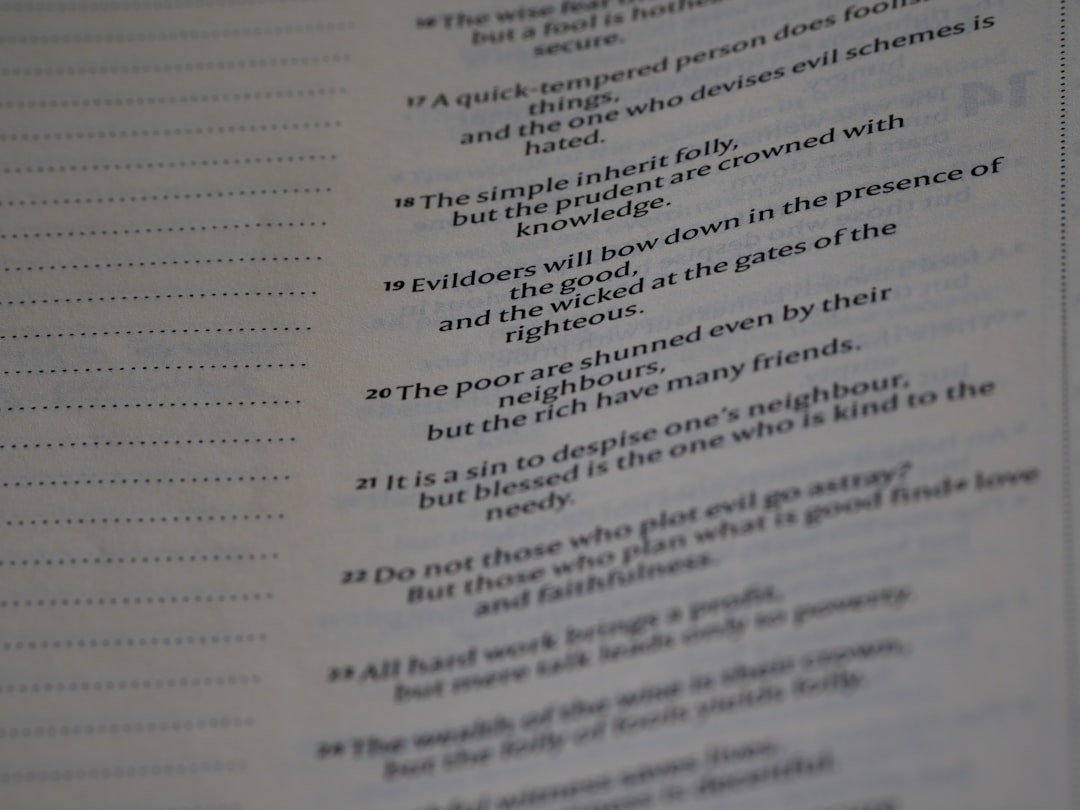 16 The wise fear
but a fool is hothe
secure.
17 A quick-tempered person does foolis
things,
and the one who devises evil schemes is
hated.
18 The simple inherit folly,
but the prudent are crowned with
knowledge.
19 Evildoers will bow down in the presence of
the good,
and the wicked at the gates of the
righteous.
20 The poor are shunned even by their
neighbours,
but the rich have many friends.
21 It is a sin to despise one's neighbour,
but blessed is the one who is kind to the
needy.
22 Do not those who plot evil go astray?
But those who plan what is good find love
and faithfulness.
23 All hard work brings a profit,
but mere talk leads only to poverty.
24 The wealth of the wise is their crown,
but the folly of fools yields folly.
witness saves lives,
is deceitful.